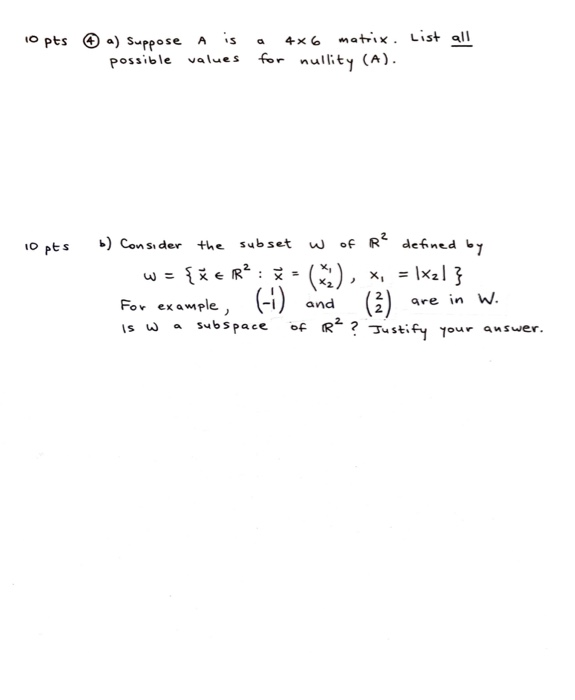 10 pts ④ a) Suppose A is a 4×6 matrix. List all
possible values for nullity (A).
10 pts b) Consider the subset W of ℝ² defined by
W = { x⃗ ∈ ℝ² : x⃗ = (x₁ x₂), x₁ = |x₂| }
For example, (1 -1) and (2 2) are in W.
Is W a subspace of ℝ² ? Justify your answer.